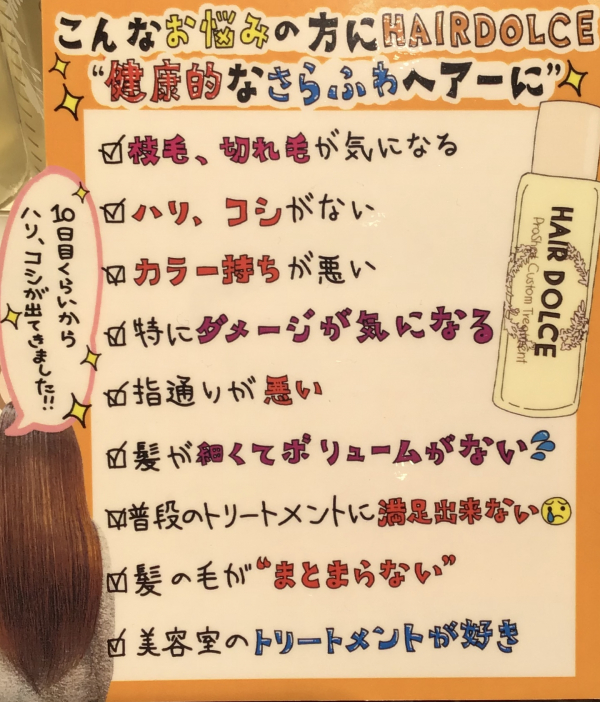 こんなお悩みの方にHAIRDOLCE
“健康的なさらふわヘアーに”
枝毛、切れ毛が気になる
ハリ、コシがない
カラー持ちが悪い
特にダメージが気になる
指通りが悪い
髪が細くてボリュームがない
普段のトリートメントに満足出来ない
髪の毛が“まとまらない”
美容室のトリートメントが好き
10日目くらいから
ハリ、コシが出てきました!!
HAIR DOLCE
Proshot Custom Treatment